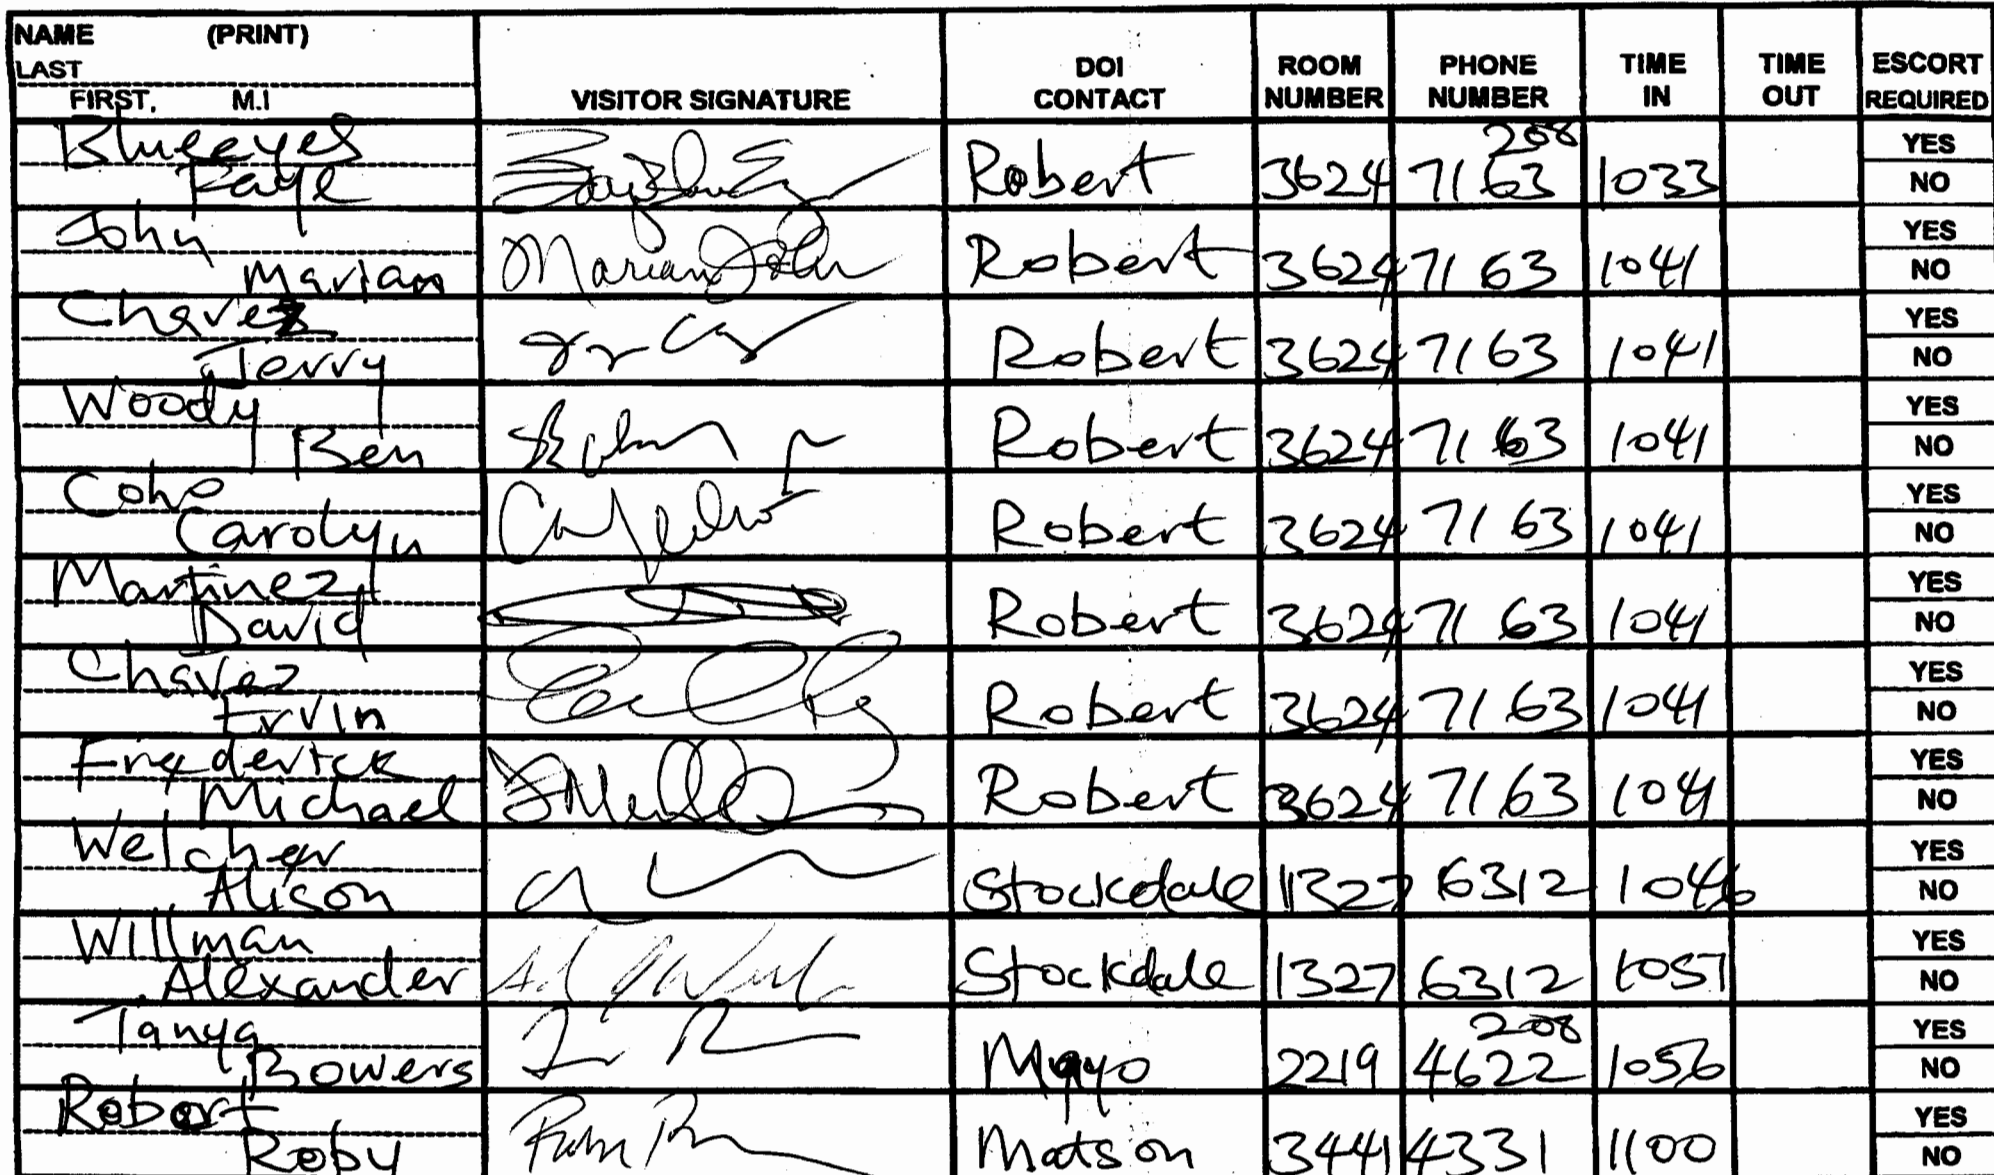 NAME (PRINT)
LAST
FIRST, M.I
VISITOR SIGNATURE
DOI
CONTACT
ROOM
NUMBER
PHONE
NUMBER
TIME
IN
TIME
OUT
ESCORT
REQUIRED
Blueeyes 208 YES
Faye Robert 3624 7163 1033 NO
John YES
Marian Marian John Robert 3624 7163 1041 NO
Chavez YES
Jerry Robert 3624 7163 1041 NO
Woody YES
Ben Robert 3624 7163 1041 NO
Coho YES
Carolyn Robert 3624 7163 1041 NO
Martinez YES
David Robert 3624 7163 1041 NO
Chavez YES
Ervin Robert 3624 7163 1041 NO
Frederick YES
Michael Robert 3624 7163 1041 NO
Welcher YES
Alison Stockdale 1327 6312 1046 NO
Willman YES
Alexander Stockdale 1327 6312 1051 NO
Tanya 208 YES
Bowers Mayo 2219 4622 1056 NO
Robert YES
Roby Matson 3441 4331 1100 NO